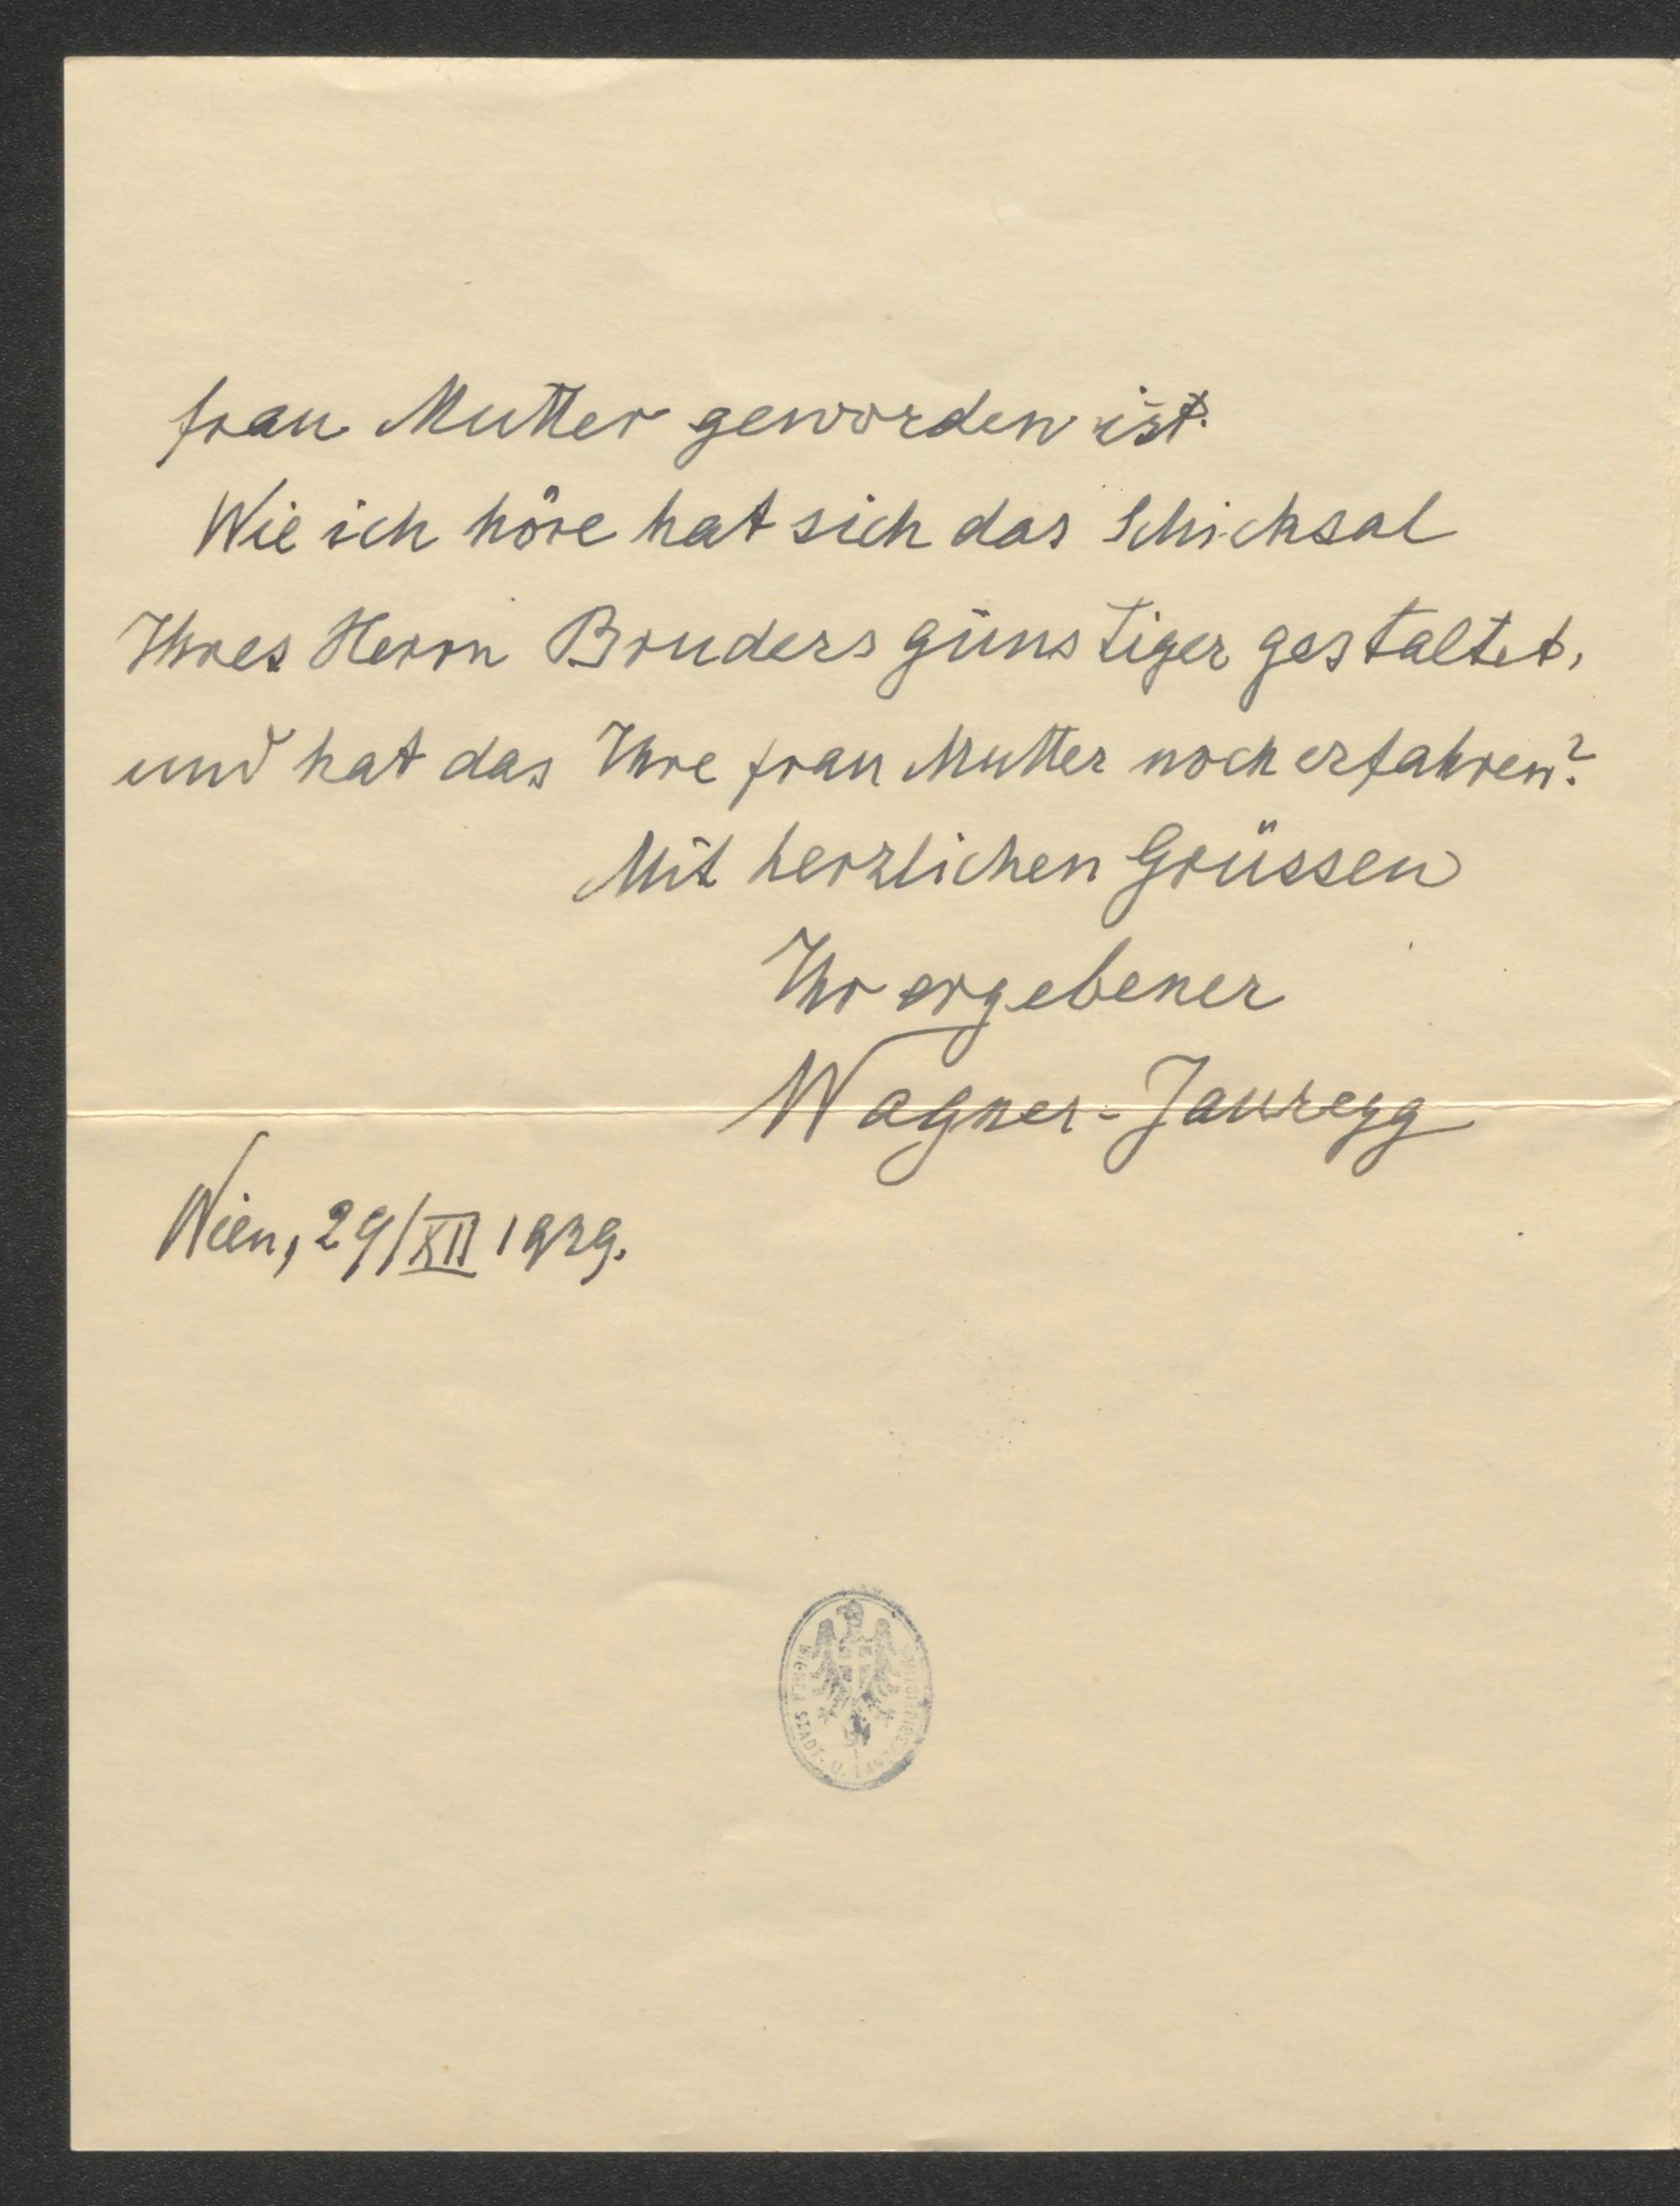 frau Mutter geworden ist.
Wie ich höre hat sich das Schicksal
Ihres Herrn Bruders günstiger gestaltet,
und hat das Ihre frau Mutter noch erfahren?
Mit herzlichen Grüssen
Ihr ergebener
Wagner-Jauregg
Wien, 29/XII 1939.
WIENER STADT- U. LANDESBIBLIOTHEK